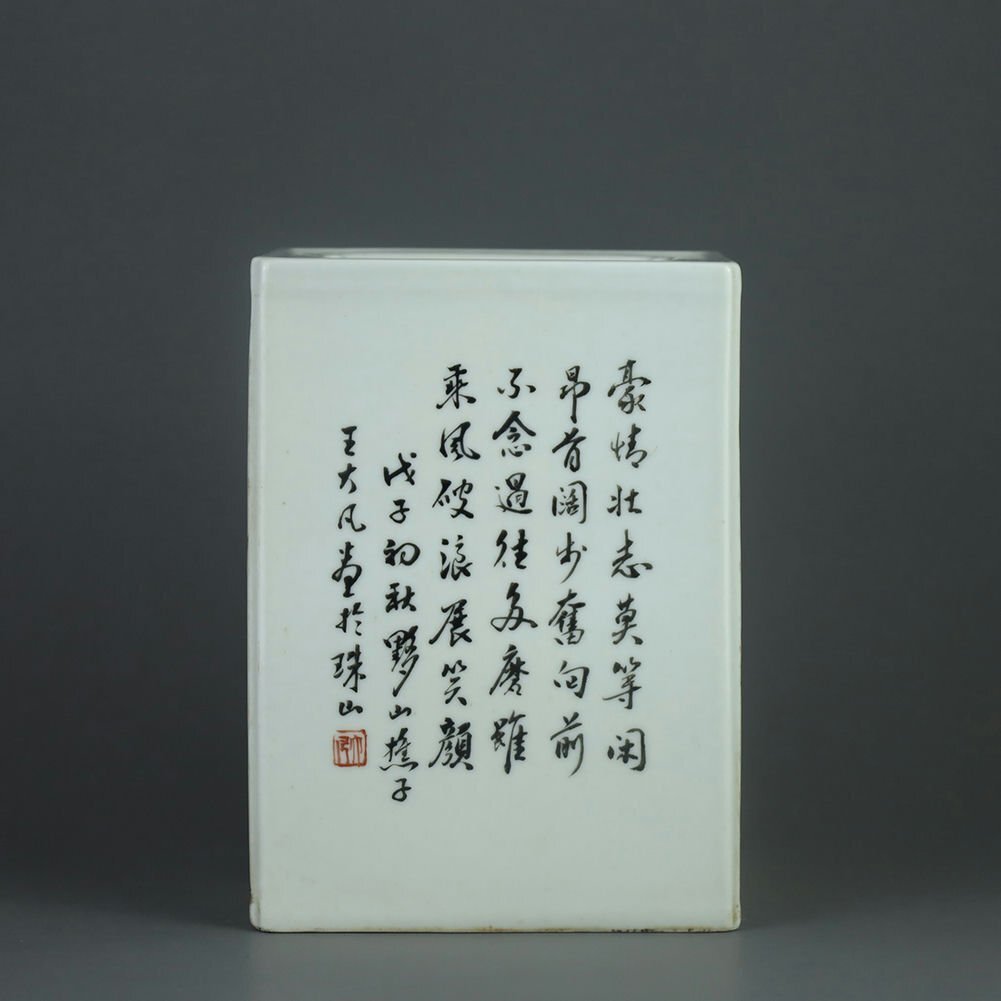 豪情壮志莫等闲
昂首阔步奮向前
不念過往多磨難
乘風破浪展笑顏
戊子初秋黟山樵子
王大凡畫於珠山
大凡